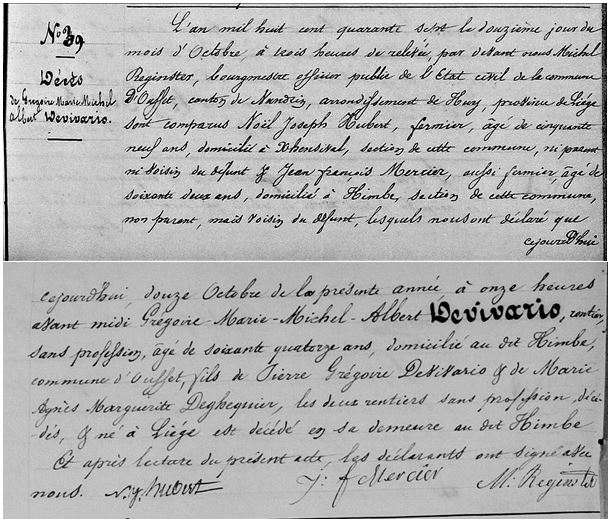 N° 39
Décès
de Grégoire Marie Michel
Albert Devivario.
L'an mil huit cent quarante sept le douzième jour du
mois d'Octobre, à trois heures de relevée, par devant nous Michel
Reginster, bourgmestre officier public de l'Etat civil de la commune
d'Ouffet, canton de Nandrin, arrondissement de Huy, province de Liége
sont comparus Noël Joseph Hubert, fermier, âgé de cinquante
neuf ans, domicilié à, section de cette commune, ni parent
ni voisin du défunt & Jean françois Mercier, aussi fermier, âgé de
soixante deux ans, domicilié à Himbe, section de cette commune,
non parent, mais voisin du défunt, lesquels nous ont déclaré que
cejourd'hui
cejourd'hui, douze Octobre de la présente année à onze heures
avant midi Grégoire-Marie-Michel-Albert Devivario, rentier,
sans profession, âgé de soixante quatorze ans, domicilié au dit Himbe,
commune d'Ouffet, fils de Pierre Grégoire Devivario & de Marie
Agnès Marguerite Deghequier, les deux rentiers sans profession, décé-
dés, & né à Liége est décédé en sa demeure au dit Himbe
Et après lecture du présent acte, les déclarants ont signé avec
nous. N. J. hubert J: f Mercier M: Reginster